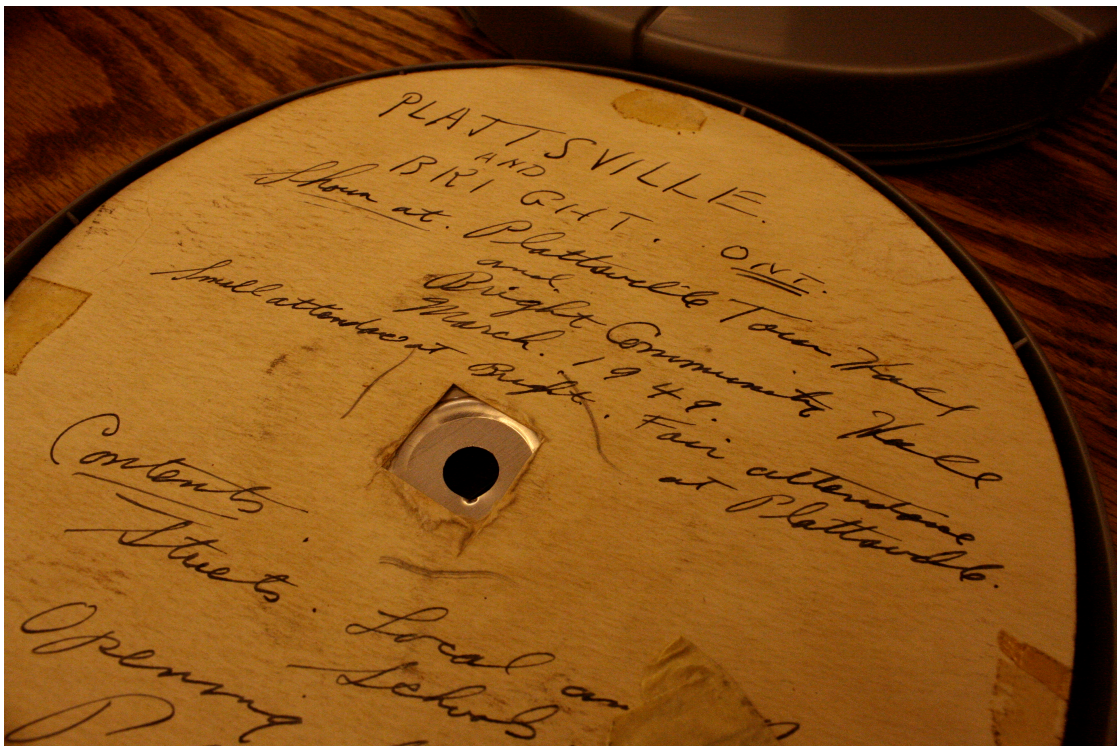 PLATTSVILLE.
AND
BRIGHT. ONE.
Shown at. Plattsville Town Hall
and
Bright Community Hall
March. 1949.
Small attendance at Bright. Fair attendane
at Plattsville.
Contents
Streets. Local an
Schools
Opening